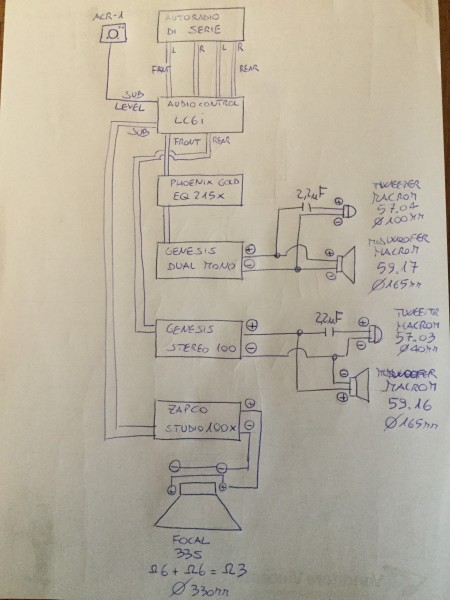 ACR-1
AUTORADIO
DI SERIE
L R L R
FRONT REAR
SUB
LEVEL
AUDIOCONTROL
LC6i
SUB
FRONT REAR
PHOENIX GOLD
EQ 215x
GENESIS
DUAL MONO
+
-
2,2µF
+
-
TWEETER
MACROM
57.04
Ø100mm
+
-
MIDWOOFER
MACROM
59.17
Ø165mm
GENESIS
STEREO 100
+
-
2,2µF
+
-
TWEETER
MACROM
57.03
Ø40mm
-
+
MIDWOOFER
MACROM
59.16
Ø165mm
ZAPCO
STUDIO 100X
+
-
- -
+ +
FOCAL
33S
Ω6 + Ω6 = Ω3
Ø 330mm